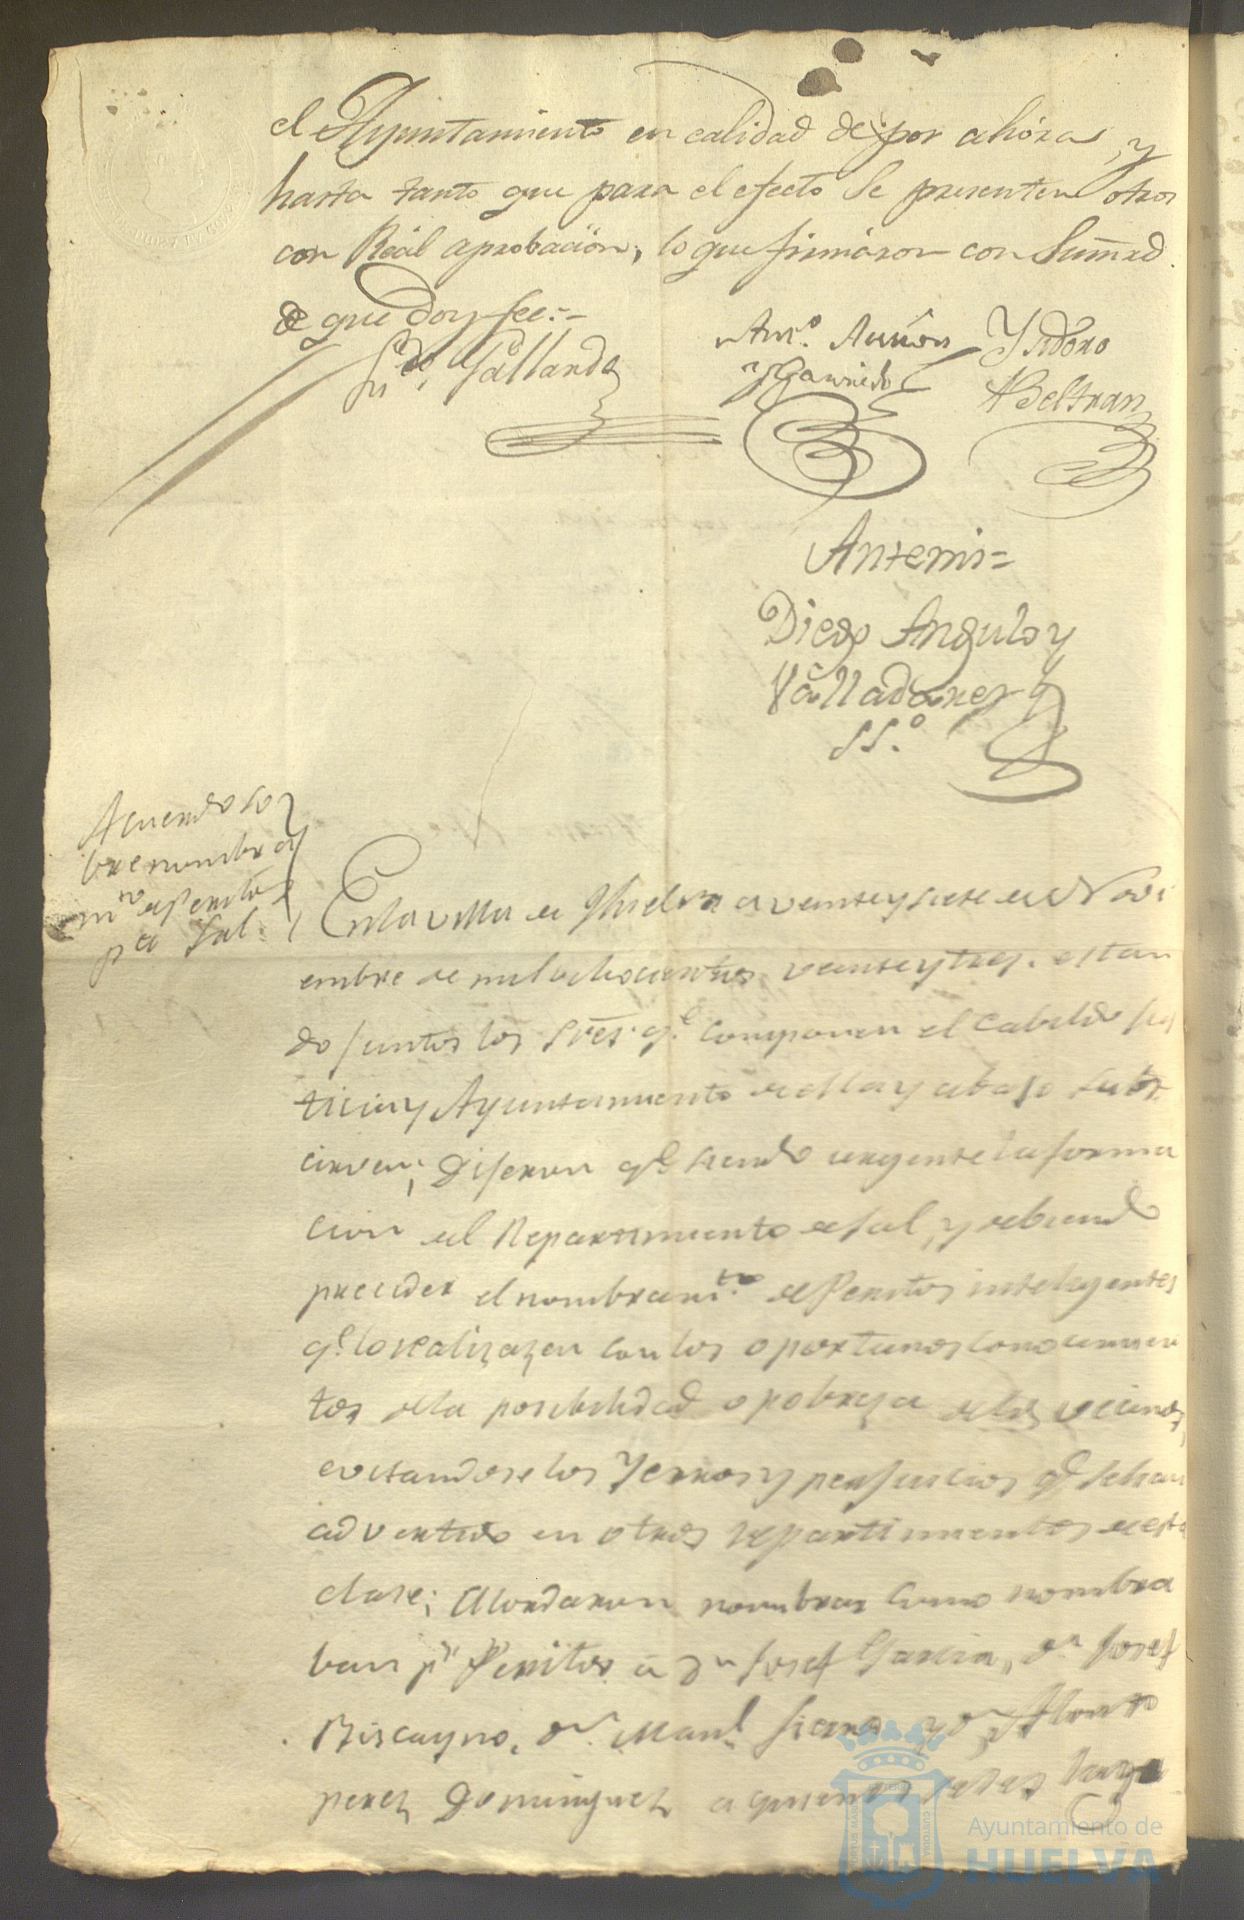 el Ayuntamiento en calidad de por ahora, y
hasta tanto que para el efecto Se presenten otros
con Real aprobacion, lo que firmáron con Sumrd.
de que doy fee:-
Gallardo
Anto. Auñon
y Garrido
Ysidoro
Beltran
Antemi=
Diego Angulo y
Valladares
SSº.
Acuerdo so
bre nombra
mto. de Peritos
pa. Sal.
En la villa de Huelva a veinte y siete de Novi
embre de mil ochocientos veinte y tres. estan
do juntos los Sres. qe. componen el Cabildo jus
ticia y Ayuntamiento de ella y abajo subs
criven; Dijeron qe. siendo urgente la forma
cion del Repartimiento de sal, y debiendo
preceder el nombramto. de Peritos inteligentes
qe. lo realizazen con los oportunos conocimien
tos de la posibilidad o pobreza de los vecinos,
evitandose los Yerros y perjuicios qe. se han
advertido en otros repartimientos de esta
clase; Acordaron nombrar como nombra
ban pr. Peritos a dn. Josef Garcia, dn. Josef
Biscayno, dn. Manl. Sierra y dn. Alonso
perez Dominguez a quienes se les haga
Ayuntamiento de
HUELVA